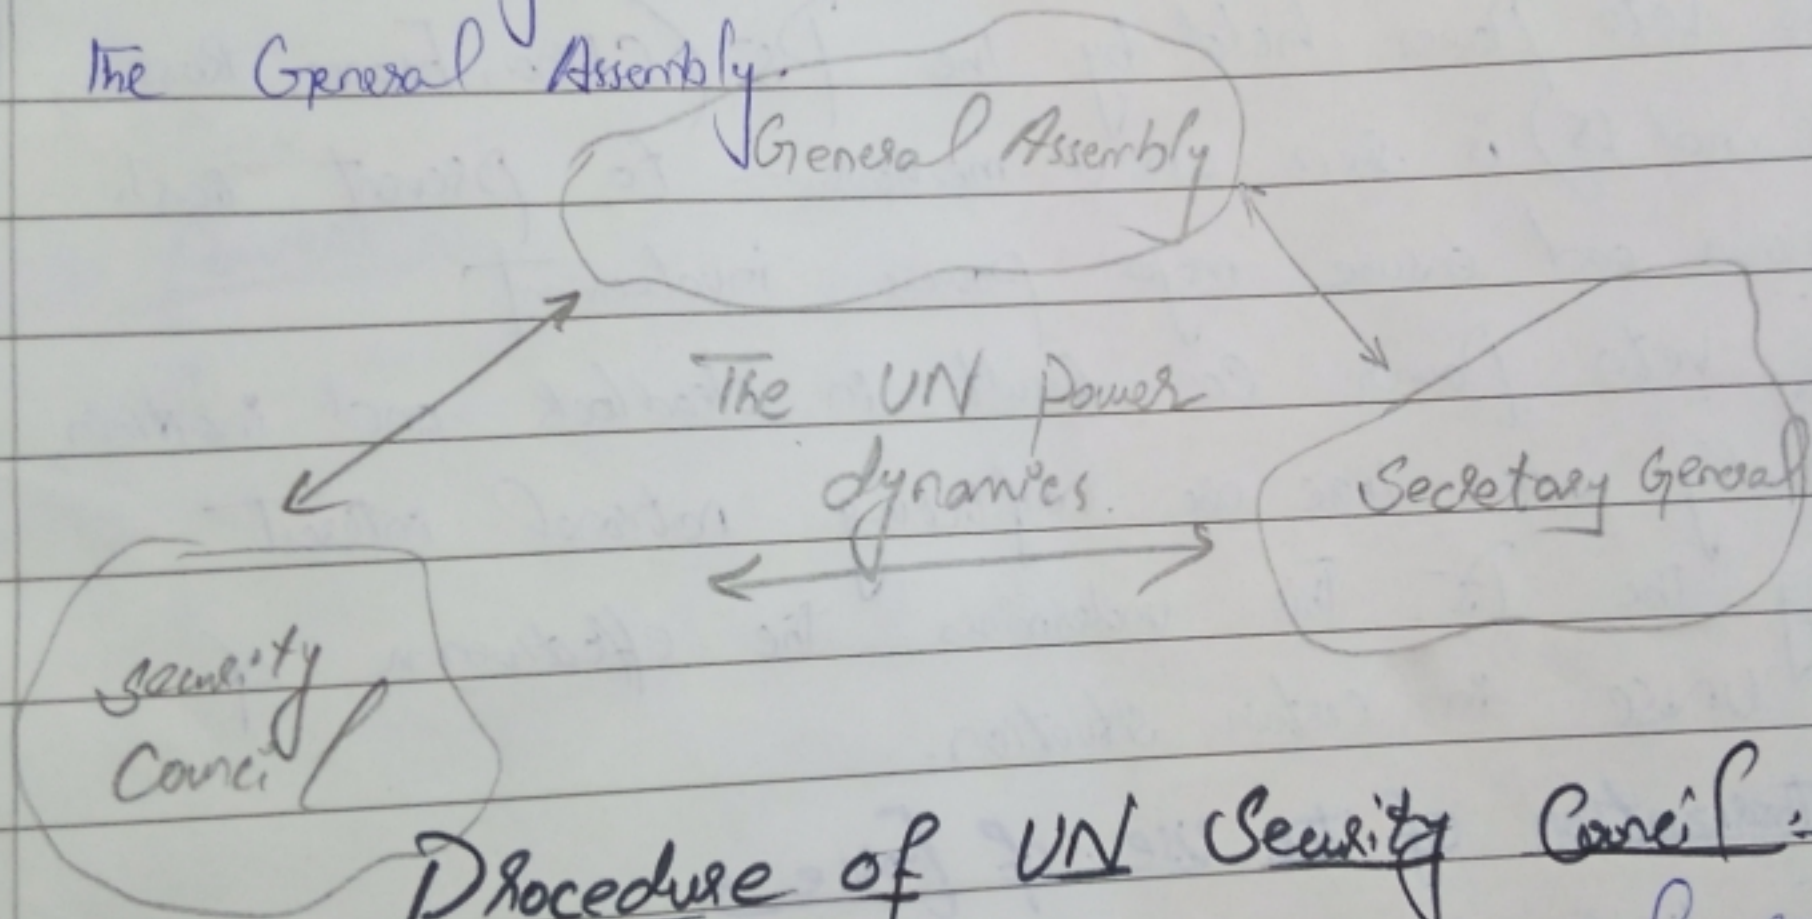 The General Assembly.
General Assembly
The UN Power
dynamics.
Secretary General
Security
Council
Procedure of UN Security Council: